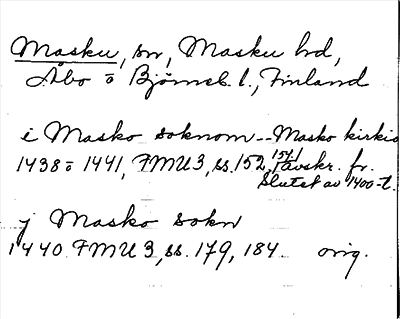 Masku, sn, Masku hd,
Åbo o Björneb. l., Finland
i Masko soknom -- Masko kirkio
1438 o 1441, FMU 3, ss. 152, 154, i avskr. fr.
slutet av 1400-t.
j Masko sokn
1440 FMU 3, ss. 179, 184 orig.